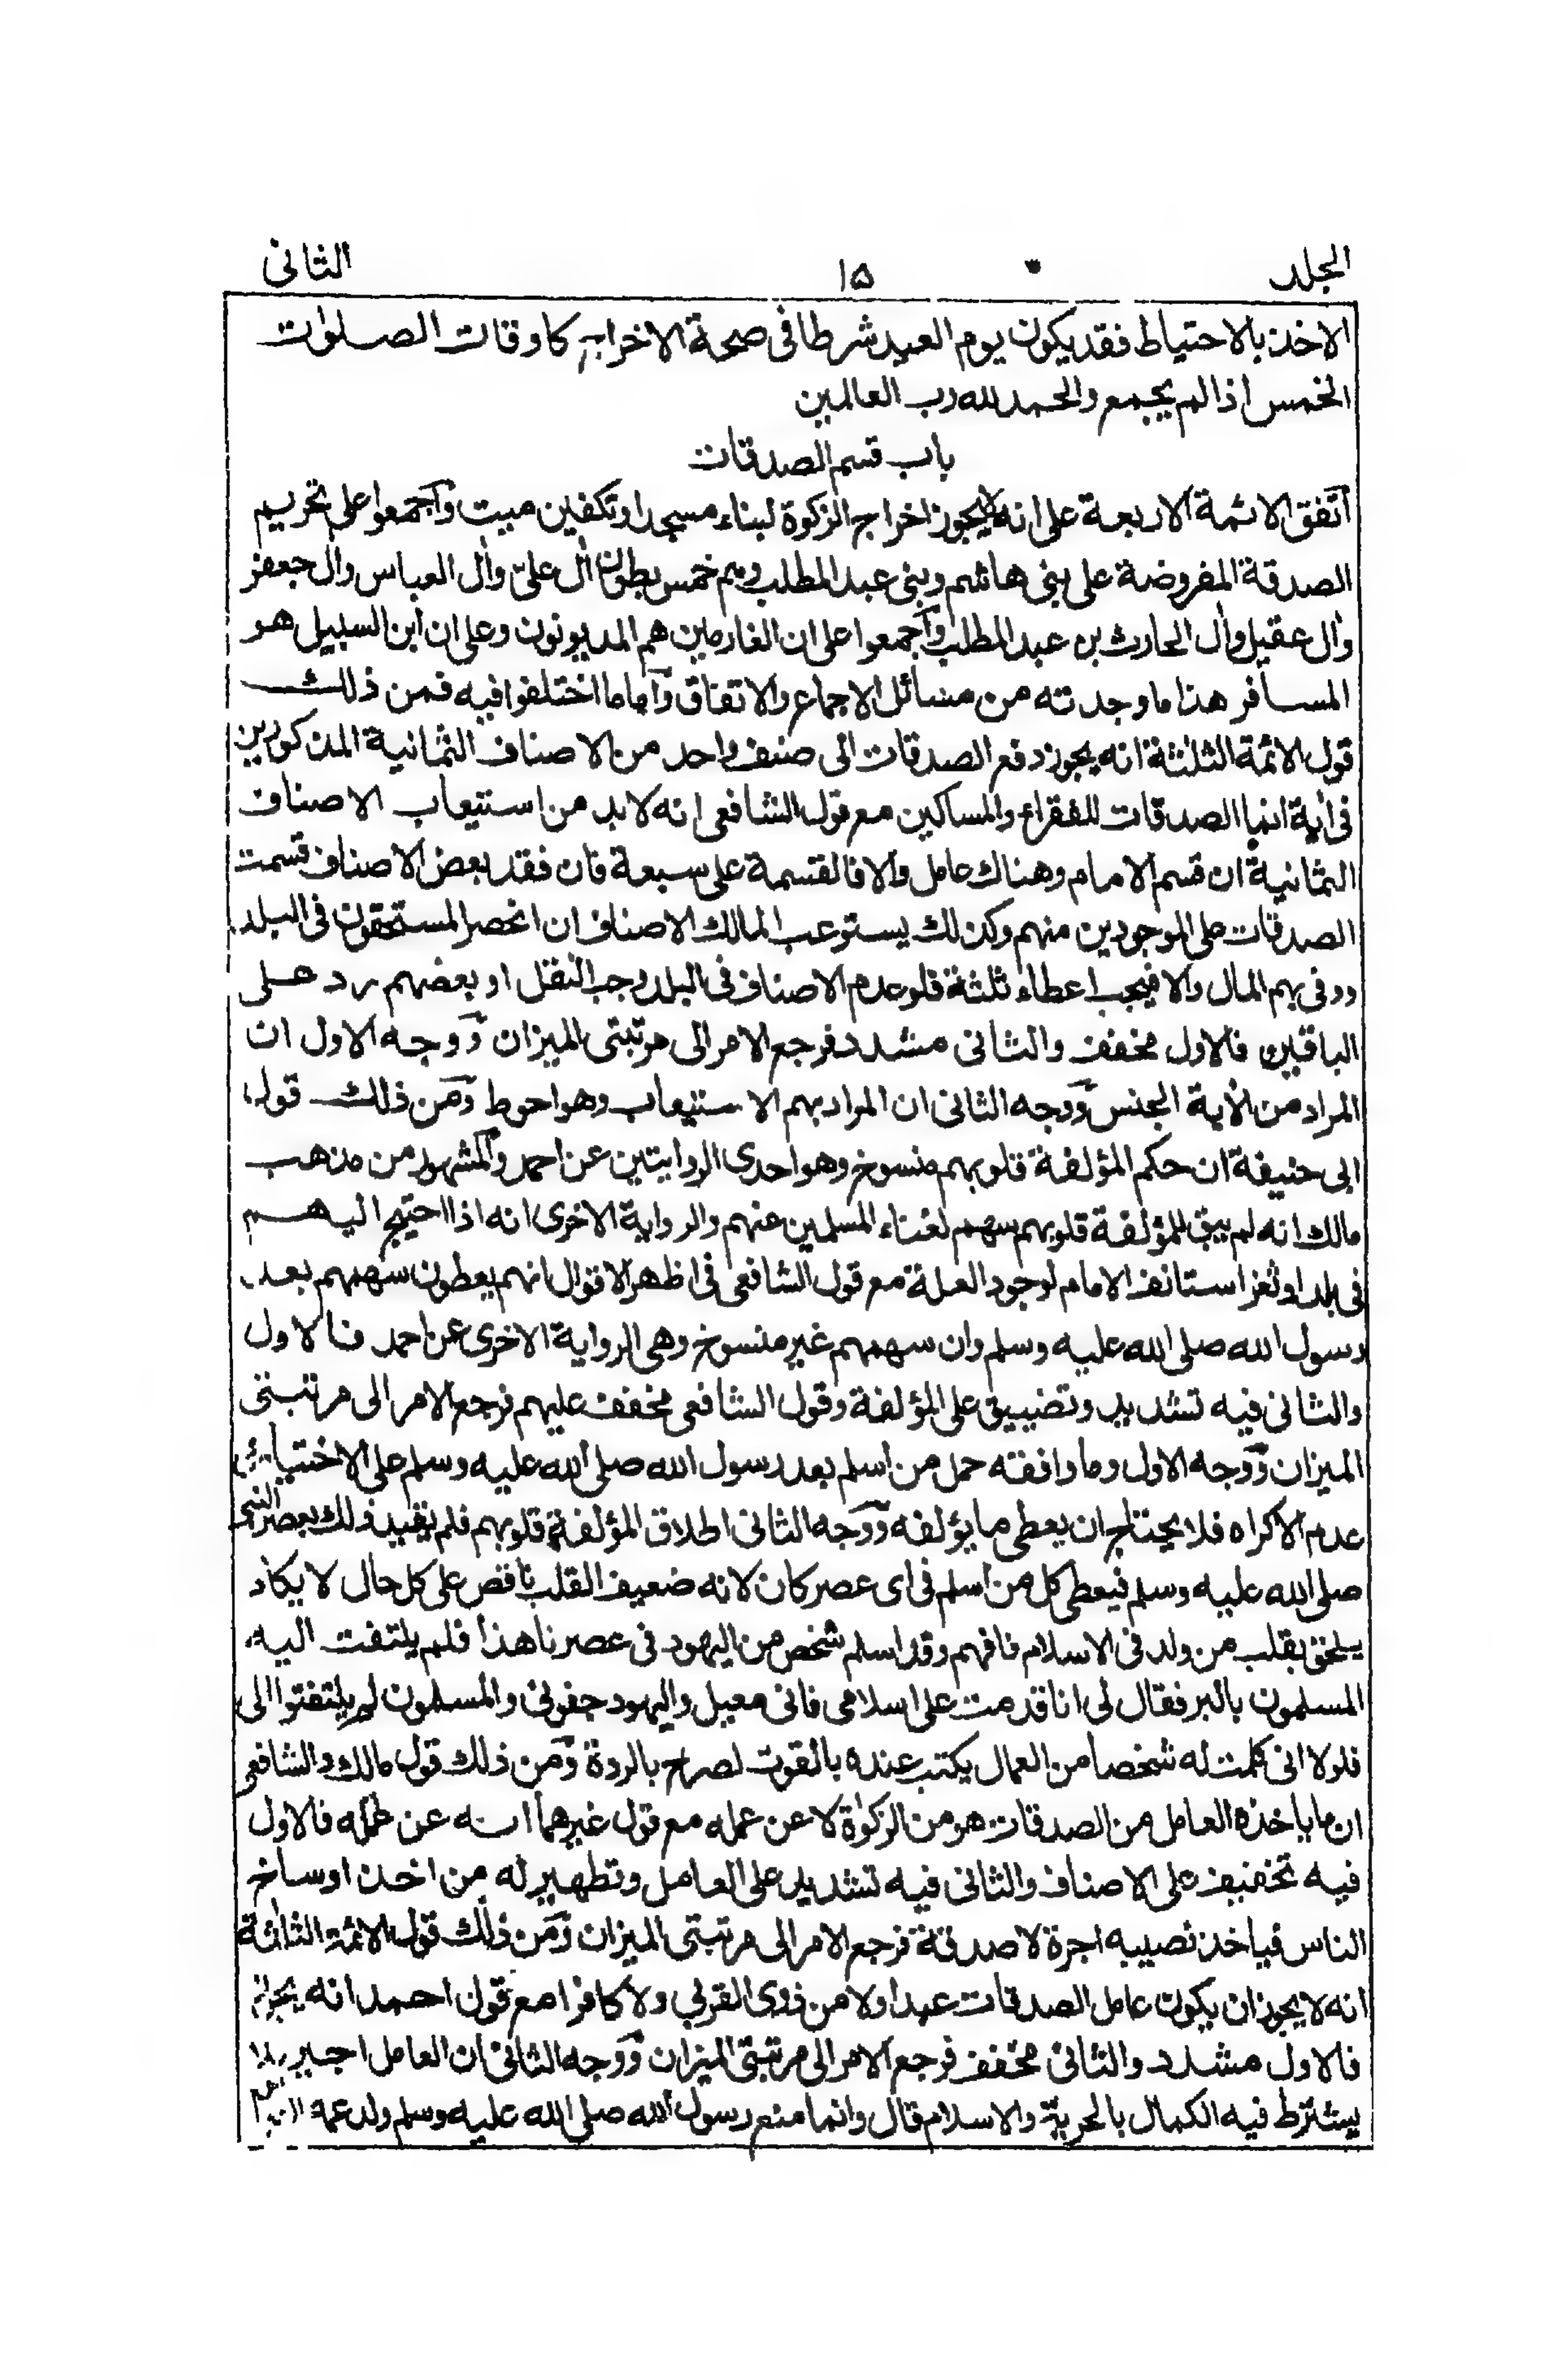 الجلد ١٥ الثانى
الاخذ بالاحتياط فقد يكون يوم العيد شرطا فى صحة الاخراج كاوقات الصلوات
الخمس اذا لم يجمع والحمد لله رب العالمين
باب قسم الصدقات
اتفق الائمة الاربعة على انه لا يجوز اخراج الزكوة لبناء مسجد او تكفين ميت وآجمعوا على تحريم
الصدقة المفروضة على بنى هاشم وبنى عبد المطلب وهم خمس بطون اٰل على واٰل العباس واٰل جعفر
واٰل عقيل واٰل الحارث بن عبد المطلب وآجمعوا على ان الغارمين هم المديونون وعلى ان ابن السبيل هو
المسافر هذا ما وجدته من مسائل الاجماع والاتفاق وآما ما اختلفوا فيه فمن ذلك
قول الائمة الثلثة انه يجوز دفع الصدقات الى صنف واحد من الاصناف الثمانية المذكورين
فى اٰية انما الصدقات للفقراء والمساكين مع قول الشافعى انه لا بد من استيعاب الاصناف
الثمانية ان قسم الامام وهناك عامل والا فالقسمة على سبعة فان فقد بعض الاصناف قسمت
الصدقات على الموجودين منهم وكذلك يستوعب المالك الاصناف ان انحصر المستحقون فى البلد
ووفى بهم المال والا فيجب اعطاء ثلثة فلو عدم الاصناف فى البلد وجب النقل او بعضهم رد على
الباقين فالاول مخفف والثانى مشدد فرجع الامر الى مرتبتى الميزان ووجه الاول ان
المراد من الاٰية الجنس ووجه الثانى ان المراد بهم الاستيعاب وهو احوط ومن ذلك قول
ابى حنيفة ان حكم المؤلفة قلوبهم منسوخ وهو احدى الروايتين عن احمد والمشهور من مذهب
مالك انه لم يبق للمؤلفة قلوبهم سهم لغناء المسلمين عنهم والرواية الاخرى انه اذا احتيج اليهم
فى بلد او ثغر استانف الامام لوجود العلة مع قول الشافعى فى اظهر الاقوال انهم يعطون سهمهم بعد
رسول الله صلى الله عليه وسلم وان سهمهم غير منسوخ وهى الرواية الاخرى عن احمد فالاول
والثانى فيه تشديد وتضييق على المؤلفة وقول الشافعى مخفف عليهم فرجع الامر الى مرتبتى
الميزان ووجه الاول وما وافقه حمل من اسلم بعد رسول الله صلى الله عليه وسلم على الاختيار
عدم الاكراه فلا يحتاج ان يعطى ما يؤلفه ووجه الثانى اطلاق المؤلفة قلوبهم فلم يقيد ذلك بعصر النبى
صلى الله عليه وسلم فيعطى كل من اسلم فى اى عصر كان لانه ضعيف القلب ناقص على كل حال لا يكاد
يلحق بقلب من ولد فى الاسلام فافهم وقد اسلم شخص من اليهود فى عصرنا هذا فلم يلتفت اليه
المسلمون بالبر فقال لى انا قدمت على اسلامى فانى معيل واليهود جفونى والمسلمون لم يلتفتوا الى
فلولا انى كلمت له شخصا من العمال يكتب عنده بالقوت لصرح بالردة ومن ذلك قول مالك والشافعى
ان ما ياخذه العامل من الصدقات هو من الزكوٰة لا عن عمله مع قول غيرهما انه عن عمله فالاول
فيه تخفيف على الاصناف والثانى فيه تشديد على العامل وتطهير له من اخذ اوساخ
الناس فياخذ نصيبه اجرة لا صدقة فرجع الامر الى مرتبتى الميزان ومن ذلك قول الائمة الثلاثة
انه لا يجوز ان يكون عامل الصدقات عبدا ولا من ذوى القربى ولا كافرا مع قول احمد انه يجوز
فالاول مشدد والثانى مخفف فرجع الامر الى مرتبتى الميزان ووجه الثانى ان العامل اجير فلا
يشترط فيه الكمال بالحرية والاسلام قال وانما منع رسول الله صلى الله عليه وسلم ولد عمه